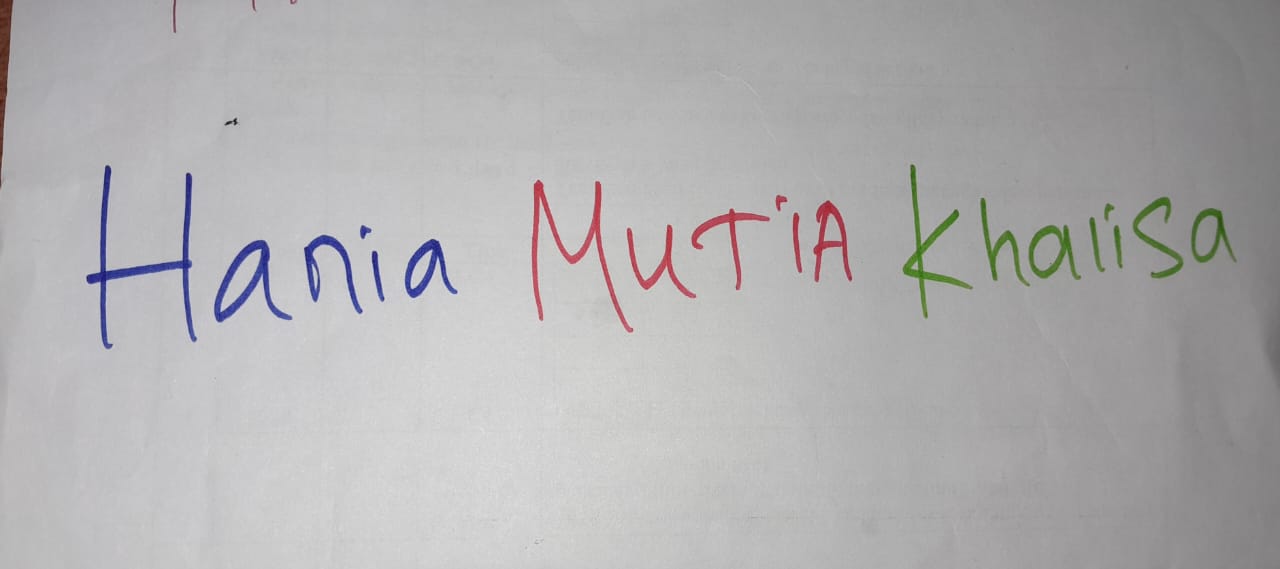 Hania MUTiA Khalisa